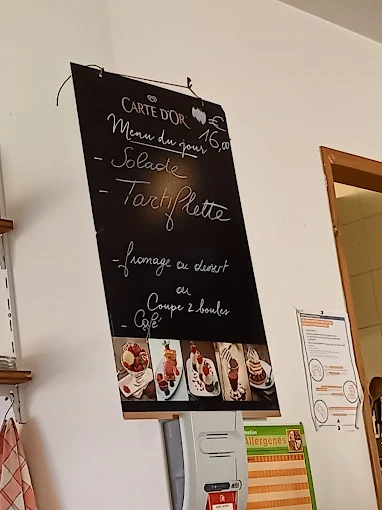 CARTE D'OR
Menu du jour 16,00 €
- Salade
- Tartiflette
- fromage ou dessert
ou
Coupe 2 boules
- Café
Allergènes